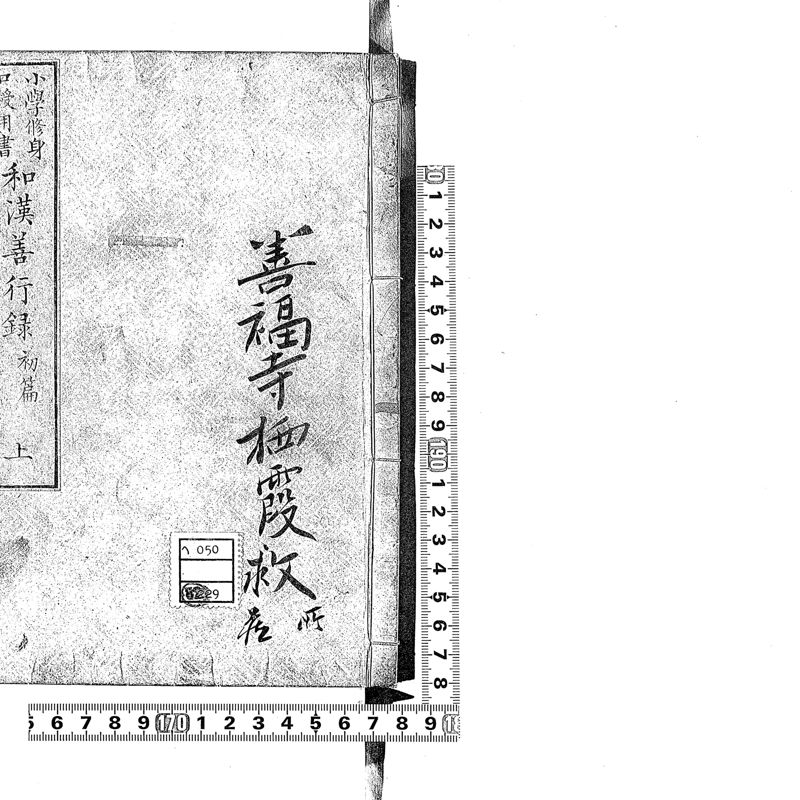 善福寺栖霞救
所
蔵
ヘ 050
229
小學修身
口授用書
和漢善行録 初篇 上
0 1 2 3 4 5 6 7 8 9 190 1 2 3 4 5 6 7 8
5 6 7 8 9 170 1 2 3 4 5 6 7 8 9